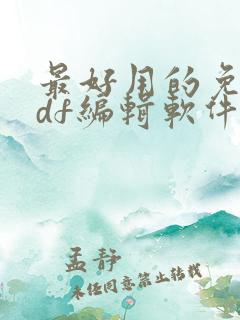 最好用的免
df编辑软件
孟静
未经同意禁止转载